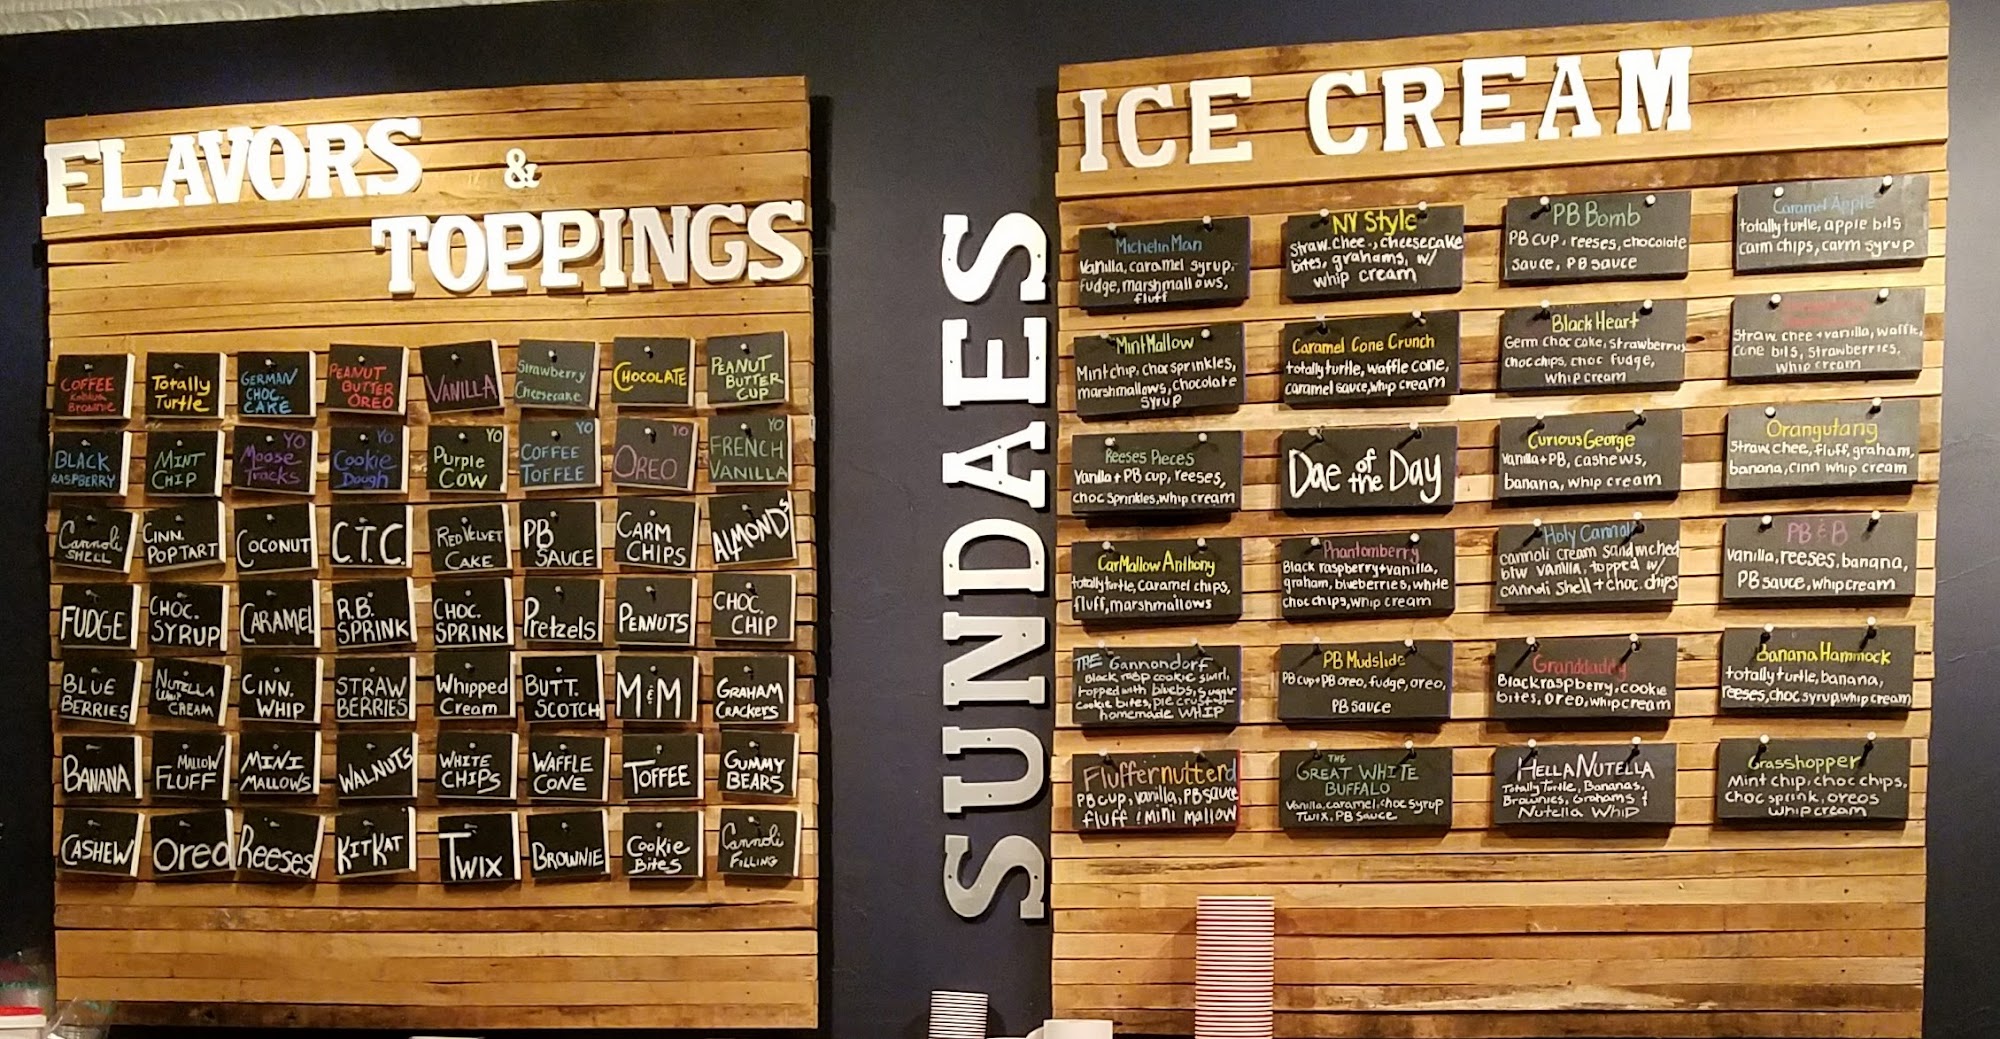 FLAVORS &
TOPPINGS
COFFEE
Kahlua
Brownie
Totally
Turtle
GERMAN
CHOC.
CAKE
PEANUT
BUTTER
OREO
VANILLA
Strawberry
Cheesecake
CHOCOLATE
PEANUT
BUTTER
CUP
BLACK
RASPBERRY
MINT
CHIP
YO
Moose
Tracks
YO
Cookie
Dough
YO
Purple
Cow
YO
COFFEE
TOFFEE
YO
OREO
YO
FRENCH
VANILLA
Cannoli
SHELL
CINN.
POPTART
COCONUT
C.T.C.
RED VELVET
CAKE
PB
SAUCE
CARM
CHIPS
ALMONDS
FUDGE
CHOC.
SYRUP
CARAMEL
R.B.
SPRINK
CHOC.
SPRINK
Pretzels
PEANUTS
CHOC.
CHIP
BLUE
BERRIES
NUTELLA
WHIP
CREAM
CINN.
WHIP
STRAW
BERRIES
Whipped
Cream
BUTT.
SCOTCH
M&M
GRAHAM
CRACKERS
BANANA
MALLOW
FLUFF
MINI
MALLOWS
WALNUTS
WHITE
CHIPS
WAFFLE
CONE
TOFFEE
GUMMY
BEARS
CASHEW
Oreo
Reeses
KITKAT
TWIX
BROWNIE
COOKIE
BITES
Cannoli
FILLING
SUNDAES
ICE CREAM
Michelin Man
Vanilla, caramel syrup,
fudge, marshmallows,
fluff
NY Style
Straw. chee., cheesecake
bites, grahams, w/
whip cream
PB Bomb
PB cup, reeses, chocolate
sauce, PB sauce
Caramel Apple
totally turtle, apple bits
carm chips, carm syrup
Mint Mallow
Mint chip, choc sprinkles,
marshmallows, chocolate
syrup
Caramel Cone Crunch
totally turtle, waffle cone,
caramel sauce, whip cream
Black Heart
Germ choc cake, strawberries
choc chips, choc fudge,
whip cream
Straw chee + vanilla, waffle,
cone bits, strawberries,
whip cream
Reeses Pieces
Vanilla + PB cup, reeses,
choc sprinkles, whip cream
Dae of the Day
Curious George
vanilla + PB, cashews,
banana, whip cream
Orangutang
Straw chee, fluff, graham,
banana, cinn whip cream
CarMallow Anthony
totally turtle, caramel chips,
fluff, marshmallows
Phantomberry
Black raspberry + vanilla,
graham, blueberries, white
choc chips, whip cream
Holy Cannoli
cannoli cream sandwiched
btw vanilla, topped w/
cannoli shell + choc. chips
PB & B
vanilla, reeses, banana,
PB sauce, whip cream
THE Gannondorf
Black rasp cookie swirl,
topped with bluebs, sugar
cookie bites, pie crust +
homemade WHIP
PB Mudslide
PB cup + PB oreo, fudge, oreo,
PB sauce
Granddaddy
Black raspberry, cookie
bites, oreo, whip cream
Banana Hammock
totally turtle, banana,
reeses, choc syrup, whip cream
Fluffernutterd
PB cup, vanilla, PB sauce
fluff ! mini mallow
THE
GREAT WHITE
BUFFALO
Vanilla, caramel, choc syrup
TWIX, PB SAUCE
HELLA NUTELLA
Totally Turtle, Bananas,
Brownies, Grahams &
Nutella Whip
Grasshopper
Mint chip, choc chips,
choc sprink, oreos
whip cream